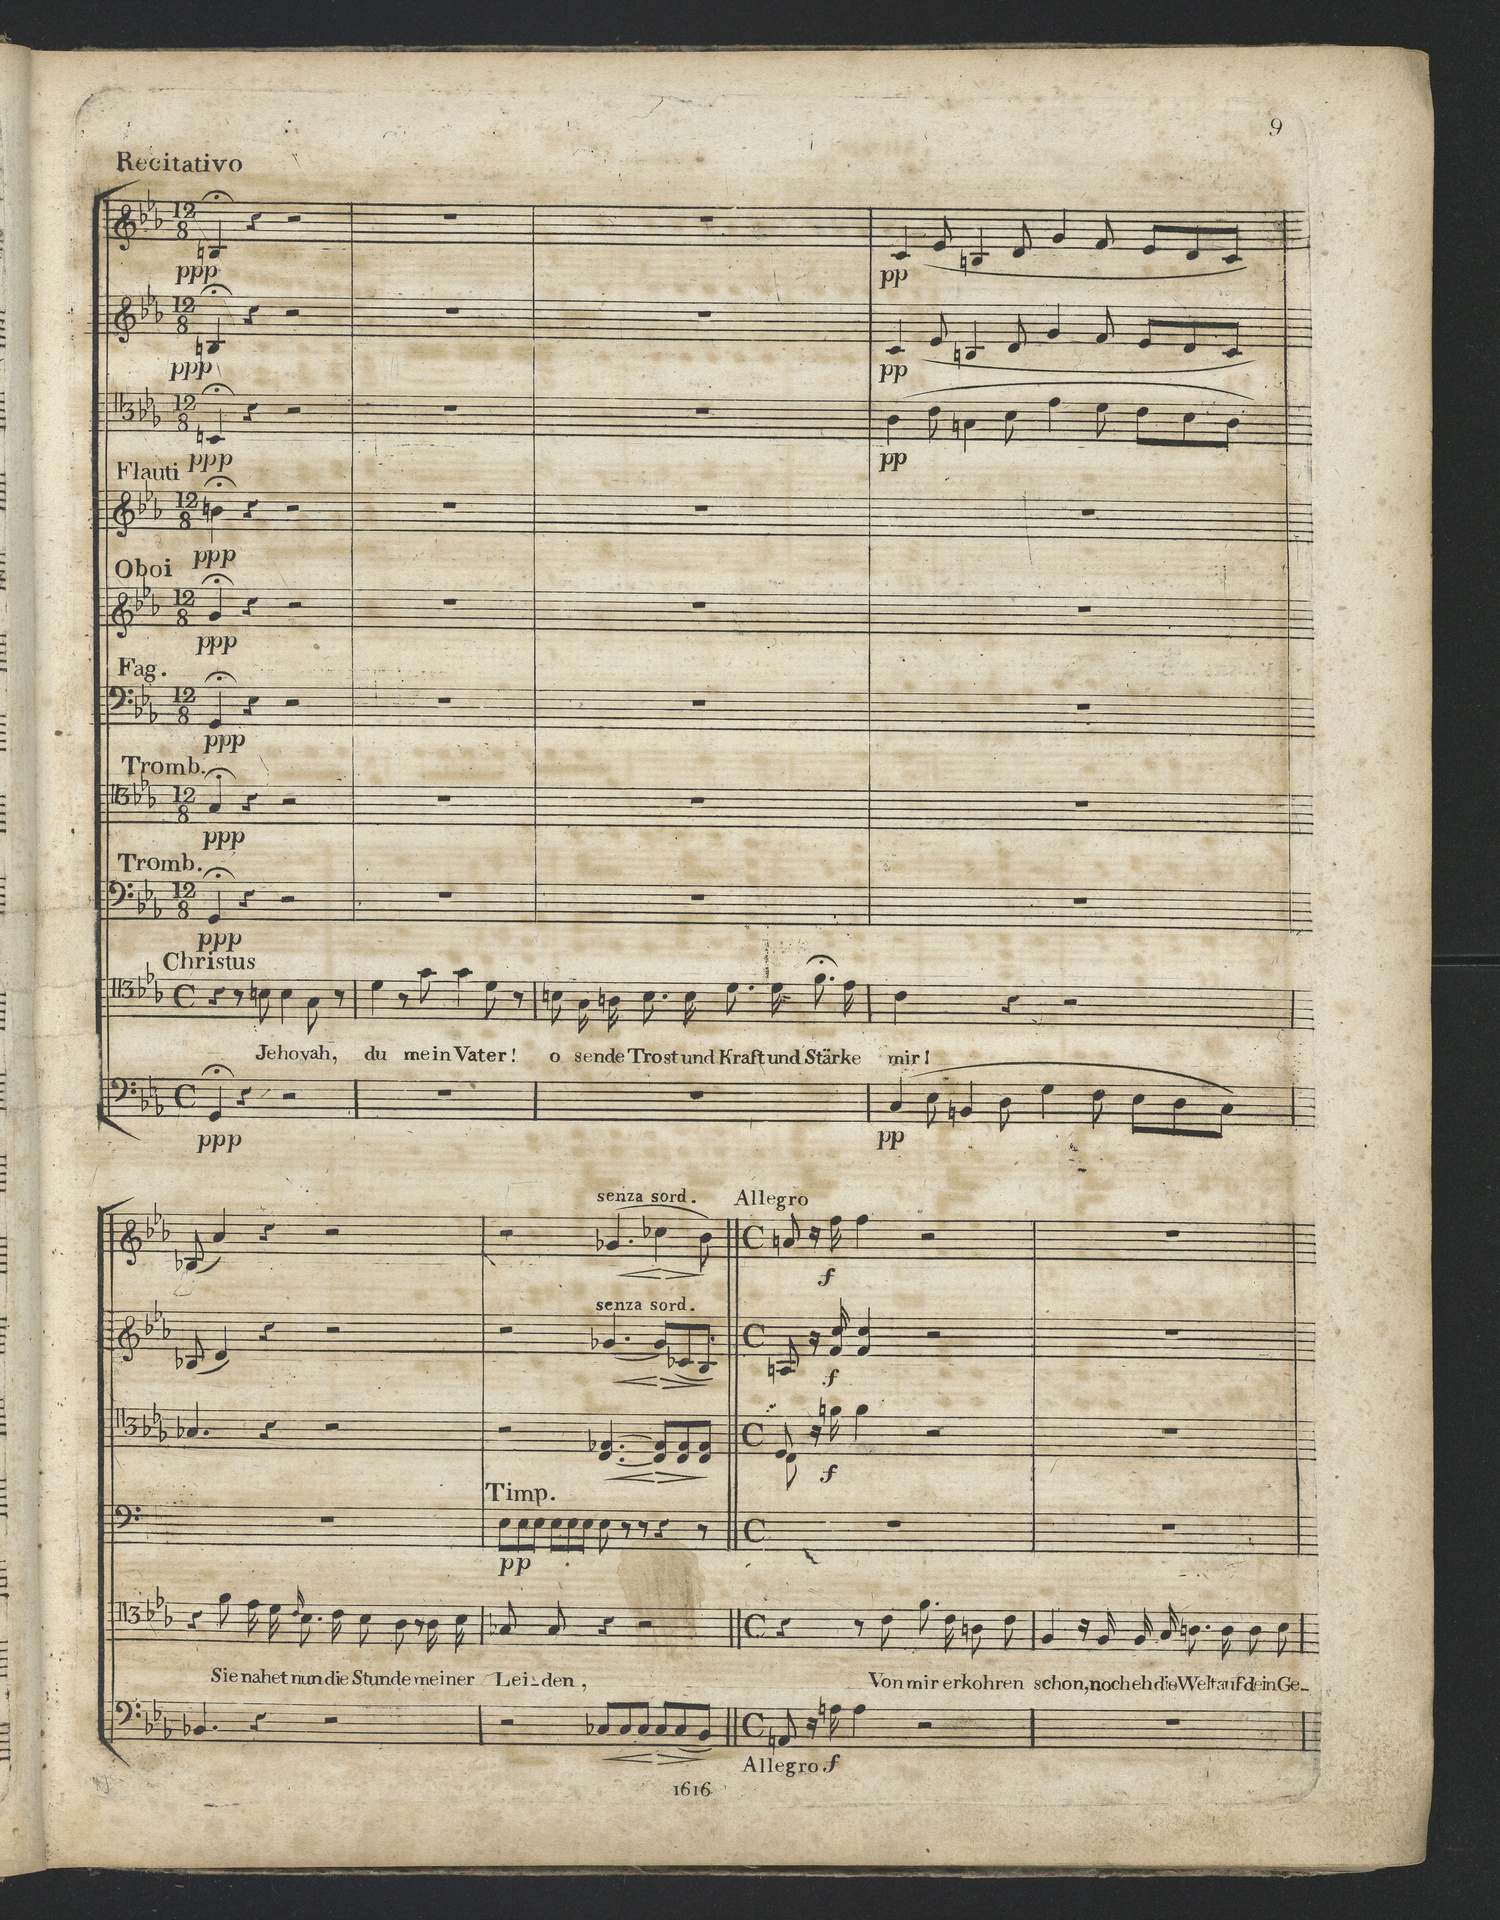 9
Recitativo
12 8
ppp
pp
12 8
ppp
pp
12 8
ppp
pp
Flauti
12 8
ppp
Oboi
12 8
ppp
Fag.
12 8
ppp
Tromb.
12 8
ppp
Tromb.
12 8
ppp
Christus
C
Jehovah, du mein Vater! o sende Trost und Kraft und Stärke mir!
C
ppp
pp
senza sord. Allegro
C
f
senza sord.
C
f
C
f
Timp.
C
pp
C
Sie nahet nun die Stunde meiner Lei-den, Von mir erkohren schon, noch eh die Welt auf dein Ge-
C
Allegro f
1616